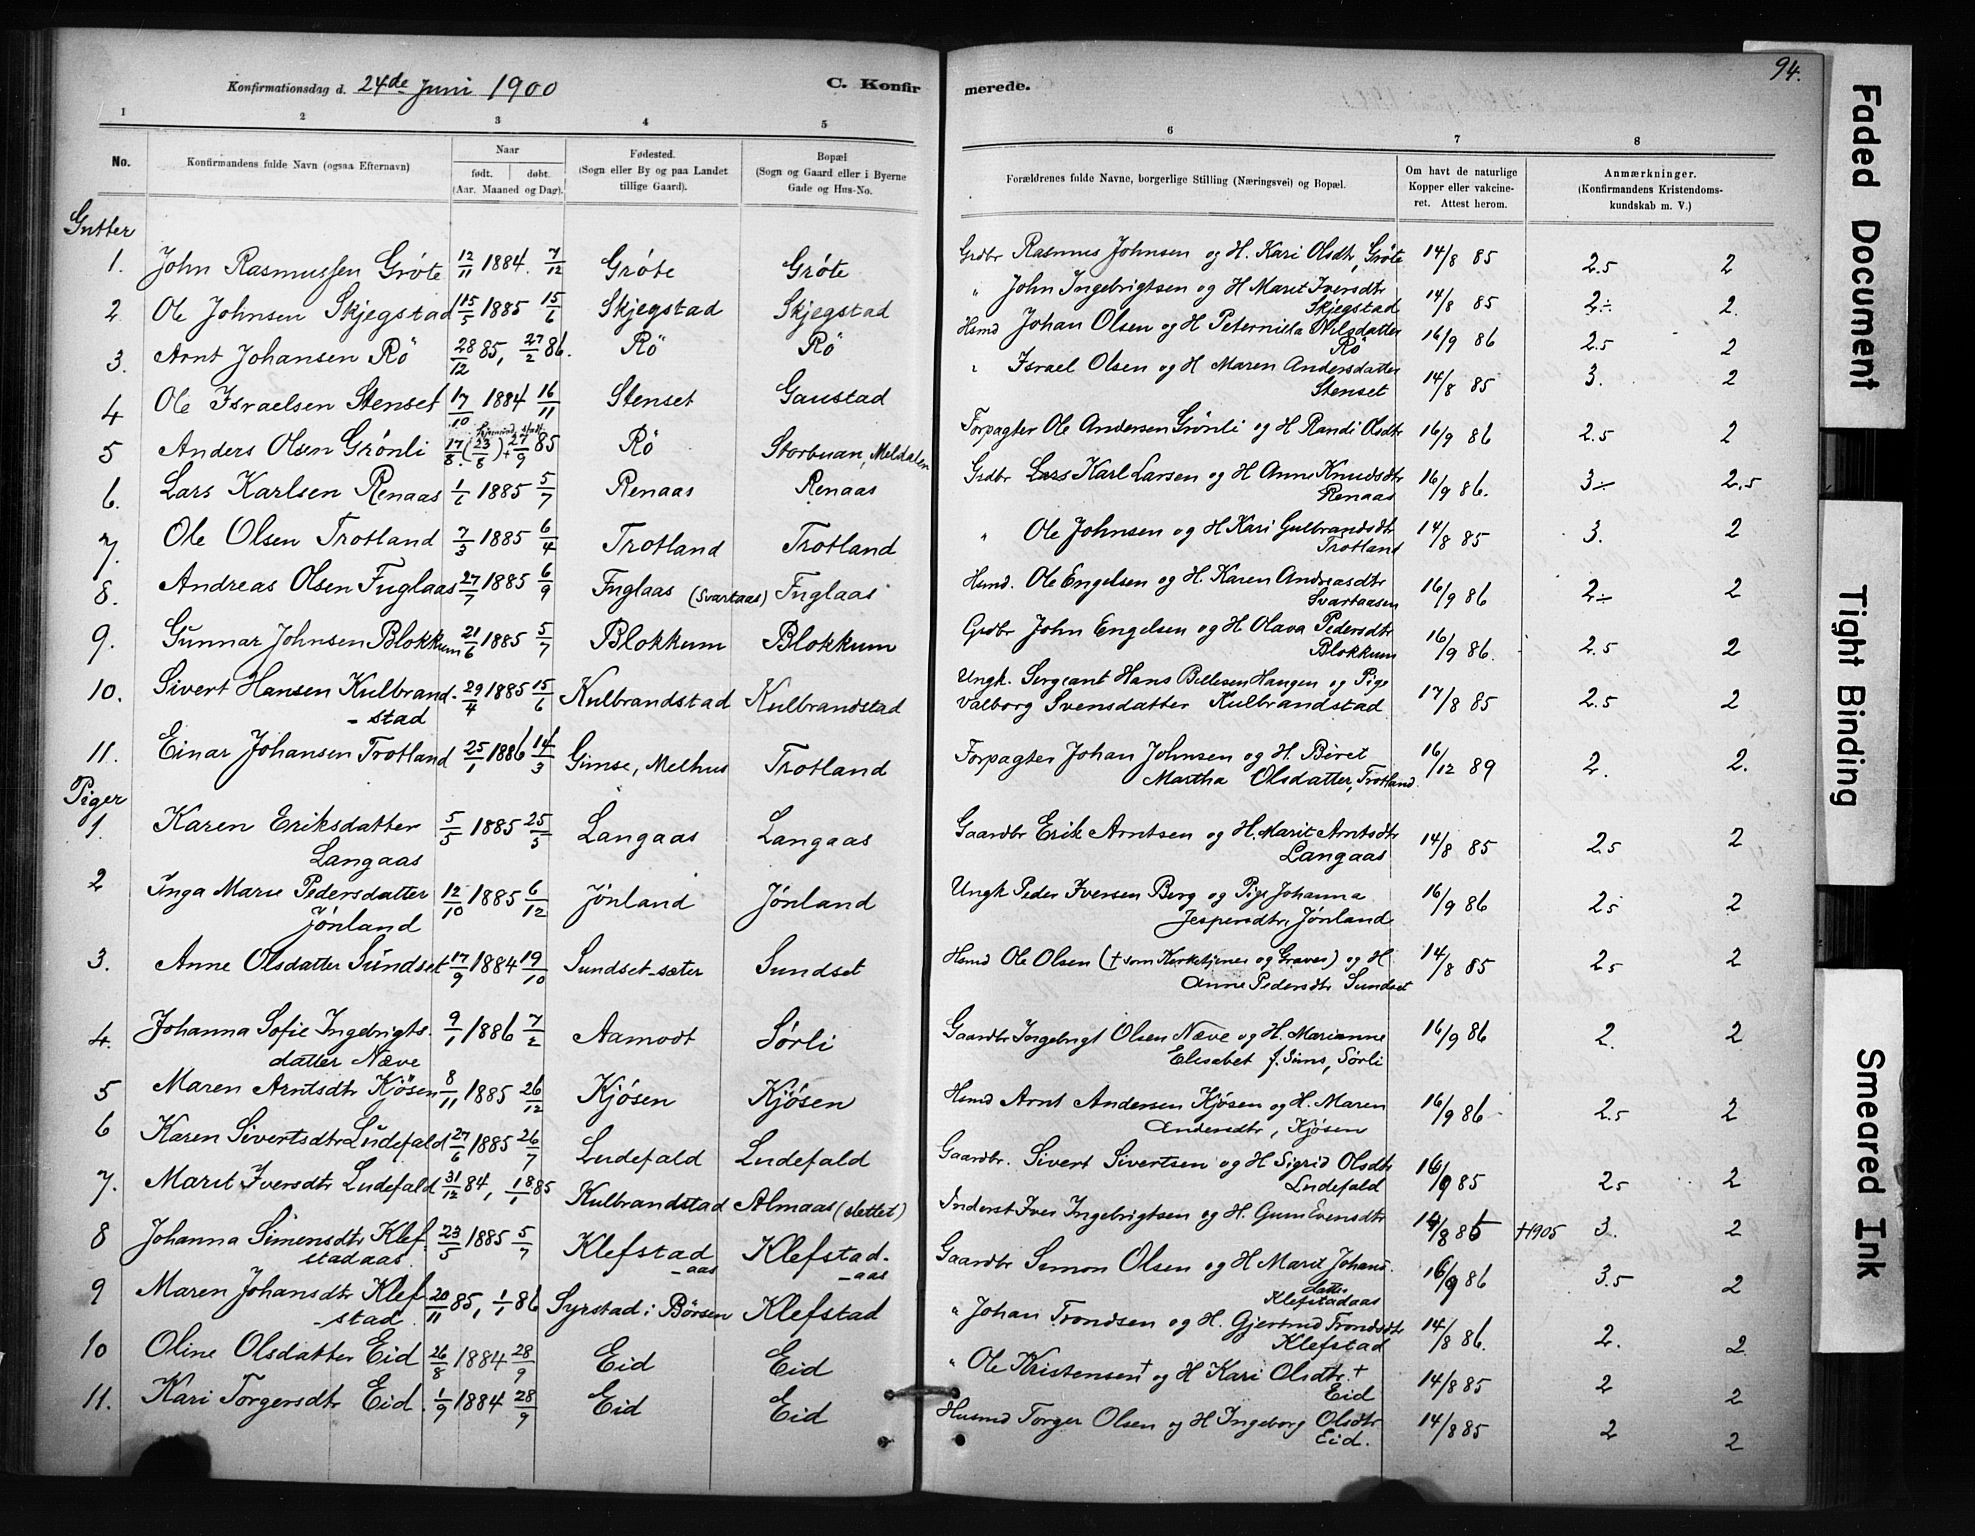 94.
Konfirmationsdag d. 24de Juni 1900 C. Konfirmerede.
1 2 3 4 5 6 7 8
No. Konfirmandens fulde Navn (ogsaa Efternavn) Naar født. døbt. (Aar. Maaned og Dag). Fødested. (Sogn eller By og paa Landet tillige Gaard). Bopæl (Sogn og Gaard eller i Byerne Gade og Hus-No. Forældrenes fulde Navne, borgerlige Stilling (Næringsvei) og Bopæl. Om havt de naturlige Kopper eller vakcineret. Attest herom. Anmærkninger. (Konfirmandens Kristendomskundskab m. V.)
Gutter
1. John Rasmussen Gróte 12/11 1884. 7/12 Gróte Gróte Grdbr Rasmus Johnsen og H. Kari Olsdtr, Gróte 14/8 85 2.5 2
2 Ole Johnsen Skjegstad 15/5 1885 15/6 Skjegstad Skjegstad " John Ingebrigtsen og H Marit Iversdtr Skjegstad 14/8 85 2÷ 2.
3. Arnt Johansen Rö 28/12 85, 27/2 86. Rö Rö Hsmd Johan Olsen og H Peternilla Nilsdatter Rö 16/9 86 2.5 2
4 Ole Israelsen Stenset 17/10 1884 16/11 Stenset Gaustad " Israel Olsen og H Maren Andersdatter Stenset 14/8 85 3. 2
5 Anders Olsen Grónli 17/8. (23/8) + 27/9 85 Rö Storbuan, Meldalen Forpagter Ole Andersen Grónli og H Randi Olsdtr 16/9 86 2.5 2
6. Lars Karlsen Renaas 1/6 1885 5/7 Renaas Renaas Grdbr Lars Karl Larsen og H Anne Knudsdtr Renaas 16/9 86. 3÷ 2.5
7. Ole Olsen Trotland 7/3 1885 6/4 Trotland Trotland " Ole Johnsen og H Kari Gulbrandsdtr Trotland 14/8 85 3. 2
8. Andreas Olsen Fuglaas 27/7 1885 6/9 Fuglaas (Svartaas) Fuglaas Hsmd. Ole Engelsen og H. Karen Andreasdtr Svartaasen 16/9 86 2÷ 2
9. Gunnar Johnsen Blokkum 21/6 1885 5/7 Blokkum Blokkum Grdbr John Engelsen og H. Olava Pedersdtr Blokkum 16/9 86. 2.5 2
10. Sivert Hansen Kulbrand-stad 29/4 1885 15/6 Kulbrandstad Kulbrandstad Ungk. Sergeant Hans Billesen Haugen og Pige Valborg Svensdatter Kulbrandstad 17/8 85 2.5 2
11. Einar Johansen Trotland 25/1 1886 14/3 Gimse, Melhus Trotland Forpagter Johan Johnsen og H. Béret Martha Olsdatter, Trotland 16/12 89 2. 2.
Piger
1. Karen Eriksdatter Langaas 5/5 1885 25/5 Langaas Langaas Gaardbr Erik Arntsen og H. Marit Arntsdtr Langaas 14/8 85 25 2
2 Inga Marie Pedersdatter Jónland 12/10 1885 6/12 Jónland Jónland Ungk Peder Iversen Berg og Pige Johanna Jespersdtr, Jónland 16/9 86 25 2
3. Anne Olsdatter Sundset 17/9 1884 19/10 Sundset-sæter Sundset Hsmd Ole Olsen († som Kirketjener og Graver) og H Anne Pedersdtr Sundset 14/8 85 25 2
4. Johanna Sofie Ingebrigts-datter Næve 9/1 1886 7/2 Aamodt Sórli Gaardbr Ingebrigt Olsen Næve og H. Marianne Elisabet f. Sims, Sórli 16/9 86 2. 2
5 Maren Arntsdtr Kjösen 8/11 1885 26/12 Kjósen Kjósen Hsmd Arnt Andersen Kjósen og H. Maren Andersdtr, Kjósen 16/9 86 2.5 2
6 Karen Sivertsdtr Ludefald 27/6 1885 26/7 Ludefald Ludefald Gaardbr. Sivert Sivertsen og H Sigrid Olsdtr Ludefald 16/9 85 25 2
7. Marit Iversdtr Ludefald 31/12 84, 18/1 85 Kulbrandstad Almaas (slettet) Inderst Iver Ingebrigtsen og H. Guru Evensdtr 14/8 85 †1905 3. 2
8 Johanna Simensdtr Klef-stadaas 23/5 1885 5/7 Klefstad-aas Klefstad-aas Gaardbr Simon Olsen og H Marit Johans-datter Klefstadaas 16/9 86 3.5 2
9 Maren Johansdtr Klef-stad 20/11 85, 1/1 86 Syrstad i Börsen Klefstad " Johan Trondsen og H. Gjertrud Trondsdtr Klefstad 14/8 86. 2. 2
10 Oline Olsdatter Eid 26/8 1884 28/9 Eid Eid " Ole Kristensen† og H Kari Olsdtr.† Eid 14/8 85 2 2
11. Kari Torgersdtr Eid. 1/9 1884 28/9 Eid Eid Husmd Torger Olsen og H Ingeborg Olsdtr Eid. 14/8 85 2 2
Faded Document
Tight Binding
Smeared Ink